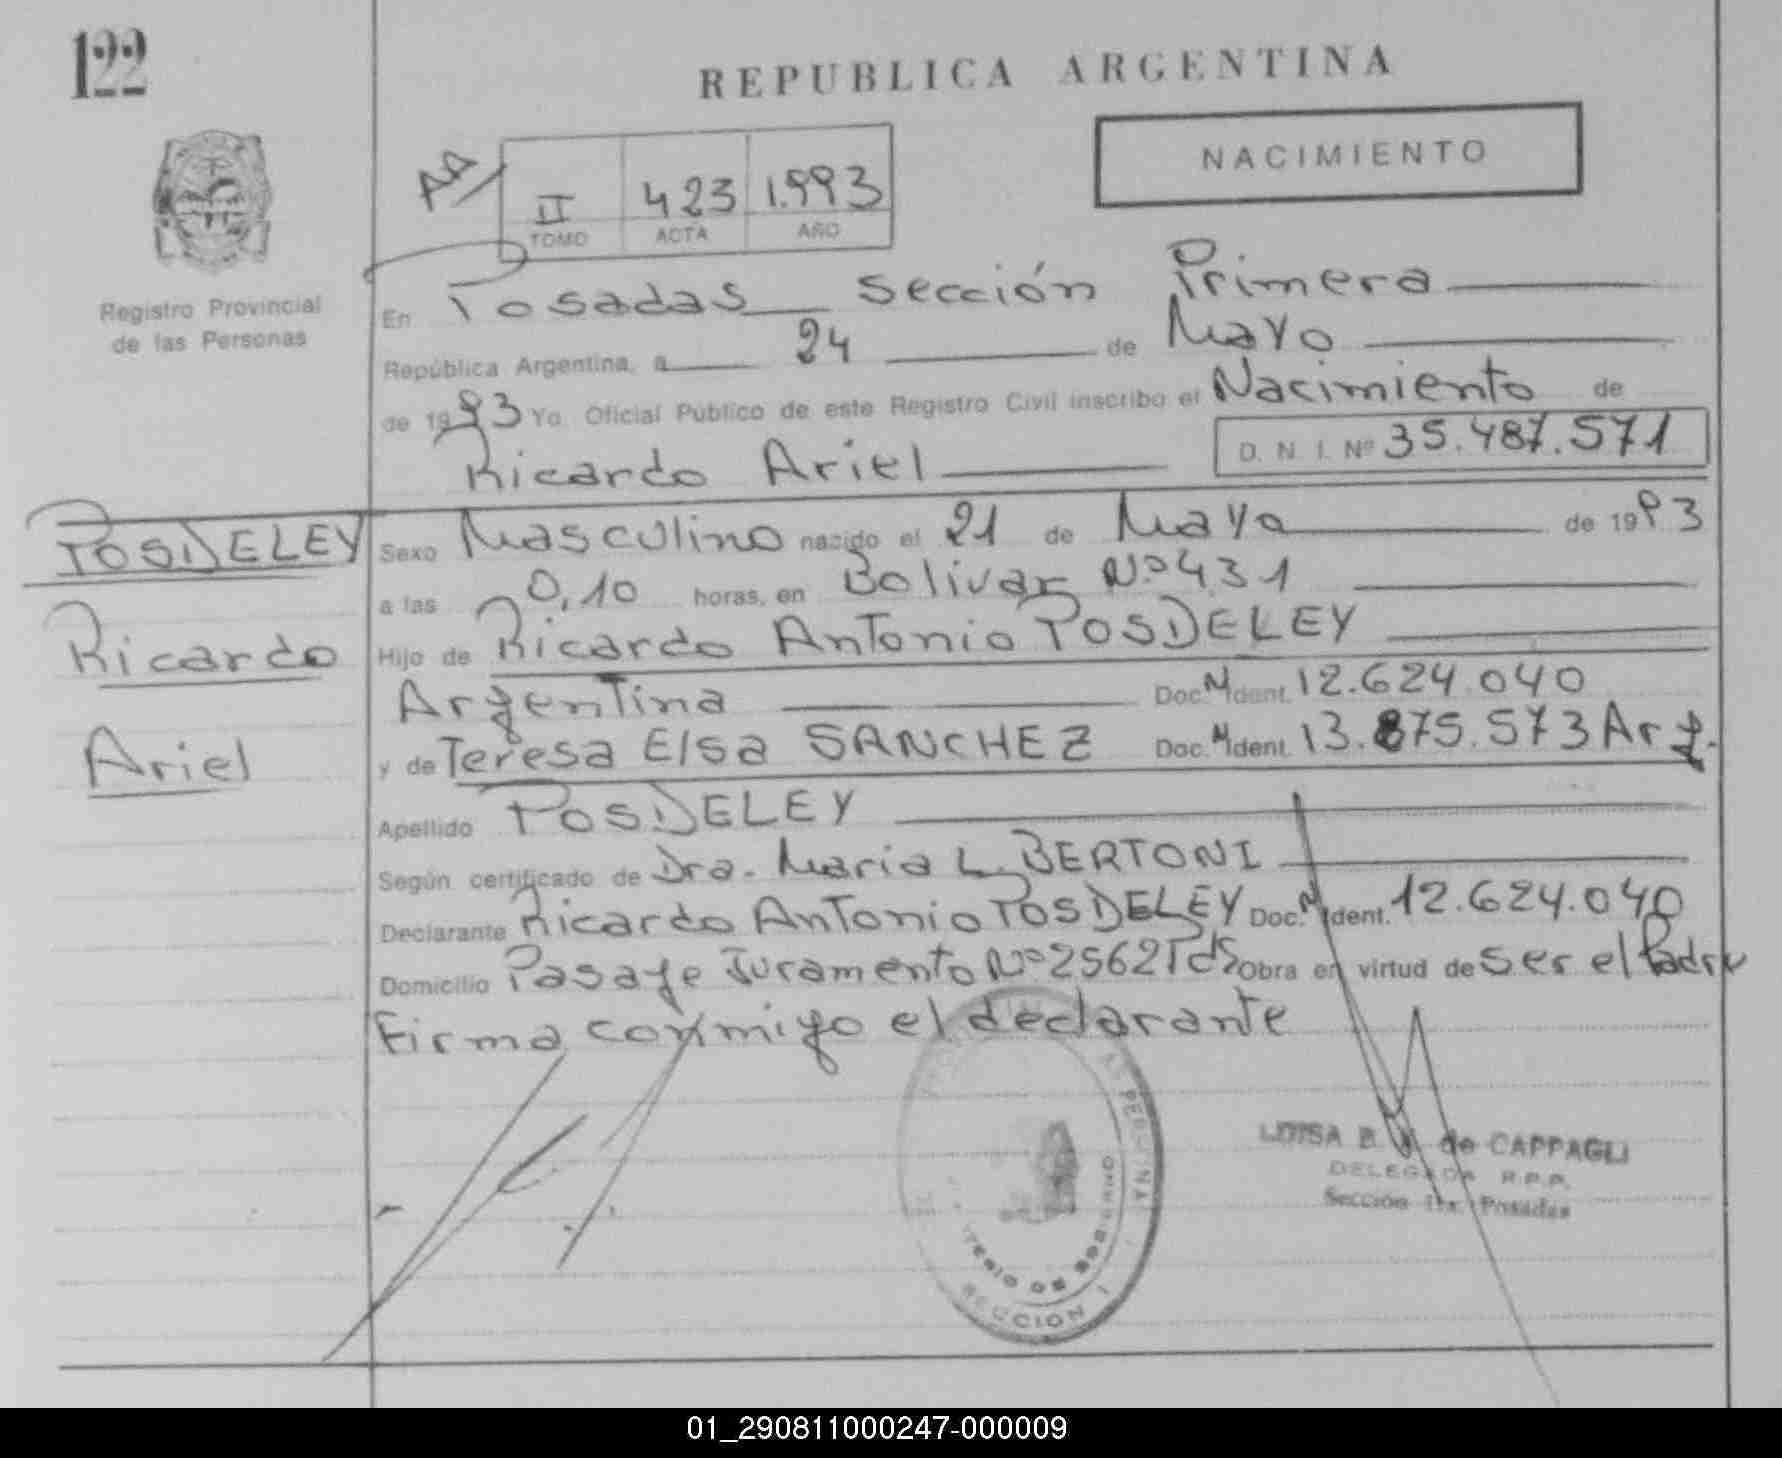 122
REPUBLICA ARGENTINA
NACIMIENTO
AA/
II 423 1.993
TOMO ACTA AÑO
Registro Provincial
de las Personas
En Posadas Sección Primera
República Argentina, a 24 de Mayo
de 1993 Yo. Oficial Público de este Registro Civil inscribo el Nacimiento de
Ricardo Ariel D. N. I. Nº 35.487.571
POSDELEY
Ricardo
Ariel
Sexo Masculino nacido el 21 de Mayo de 1993
a las 0,10 horas, en Bolivar Nº 431
Hijo de Ricardo Antonio POSDELEY
Argentina Doc. N Ident. 12.624.040
y de Teresa Elsa SANCHEZ Doc. N Ident. 13.875.573 Arg.
Apellido POSDELEY
Según certificado de Dra. Maria L. BERTONI
Declarante Ricardo Antonio POSDELEY Doc. N Ident. 12.624.040
Domicilio Pasaje Juramento Nº 2562 Pds Obra en virtud de ser el Padre
Firma conmigo el declarante
LUISA B. de CAPPAGLI
DELEGADA R.P.P.
Sección 1ra. Posadas
SECCION 1
01_290811000247-000009